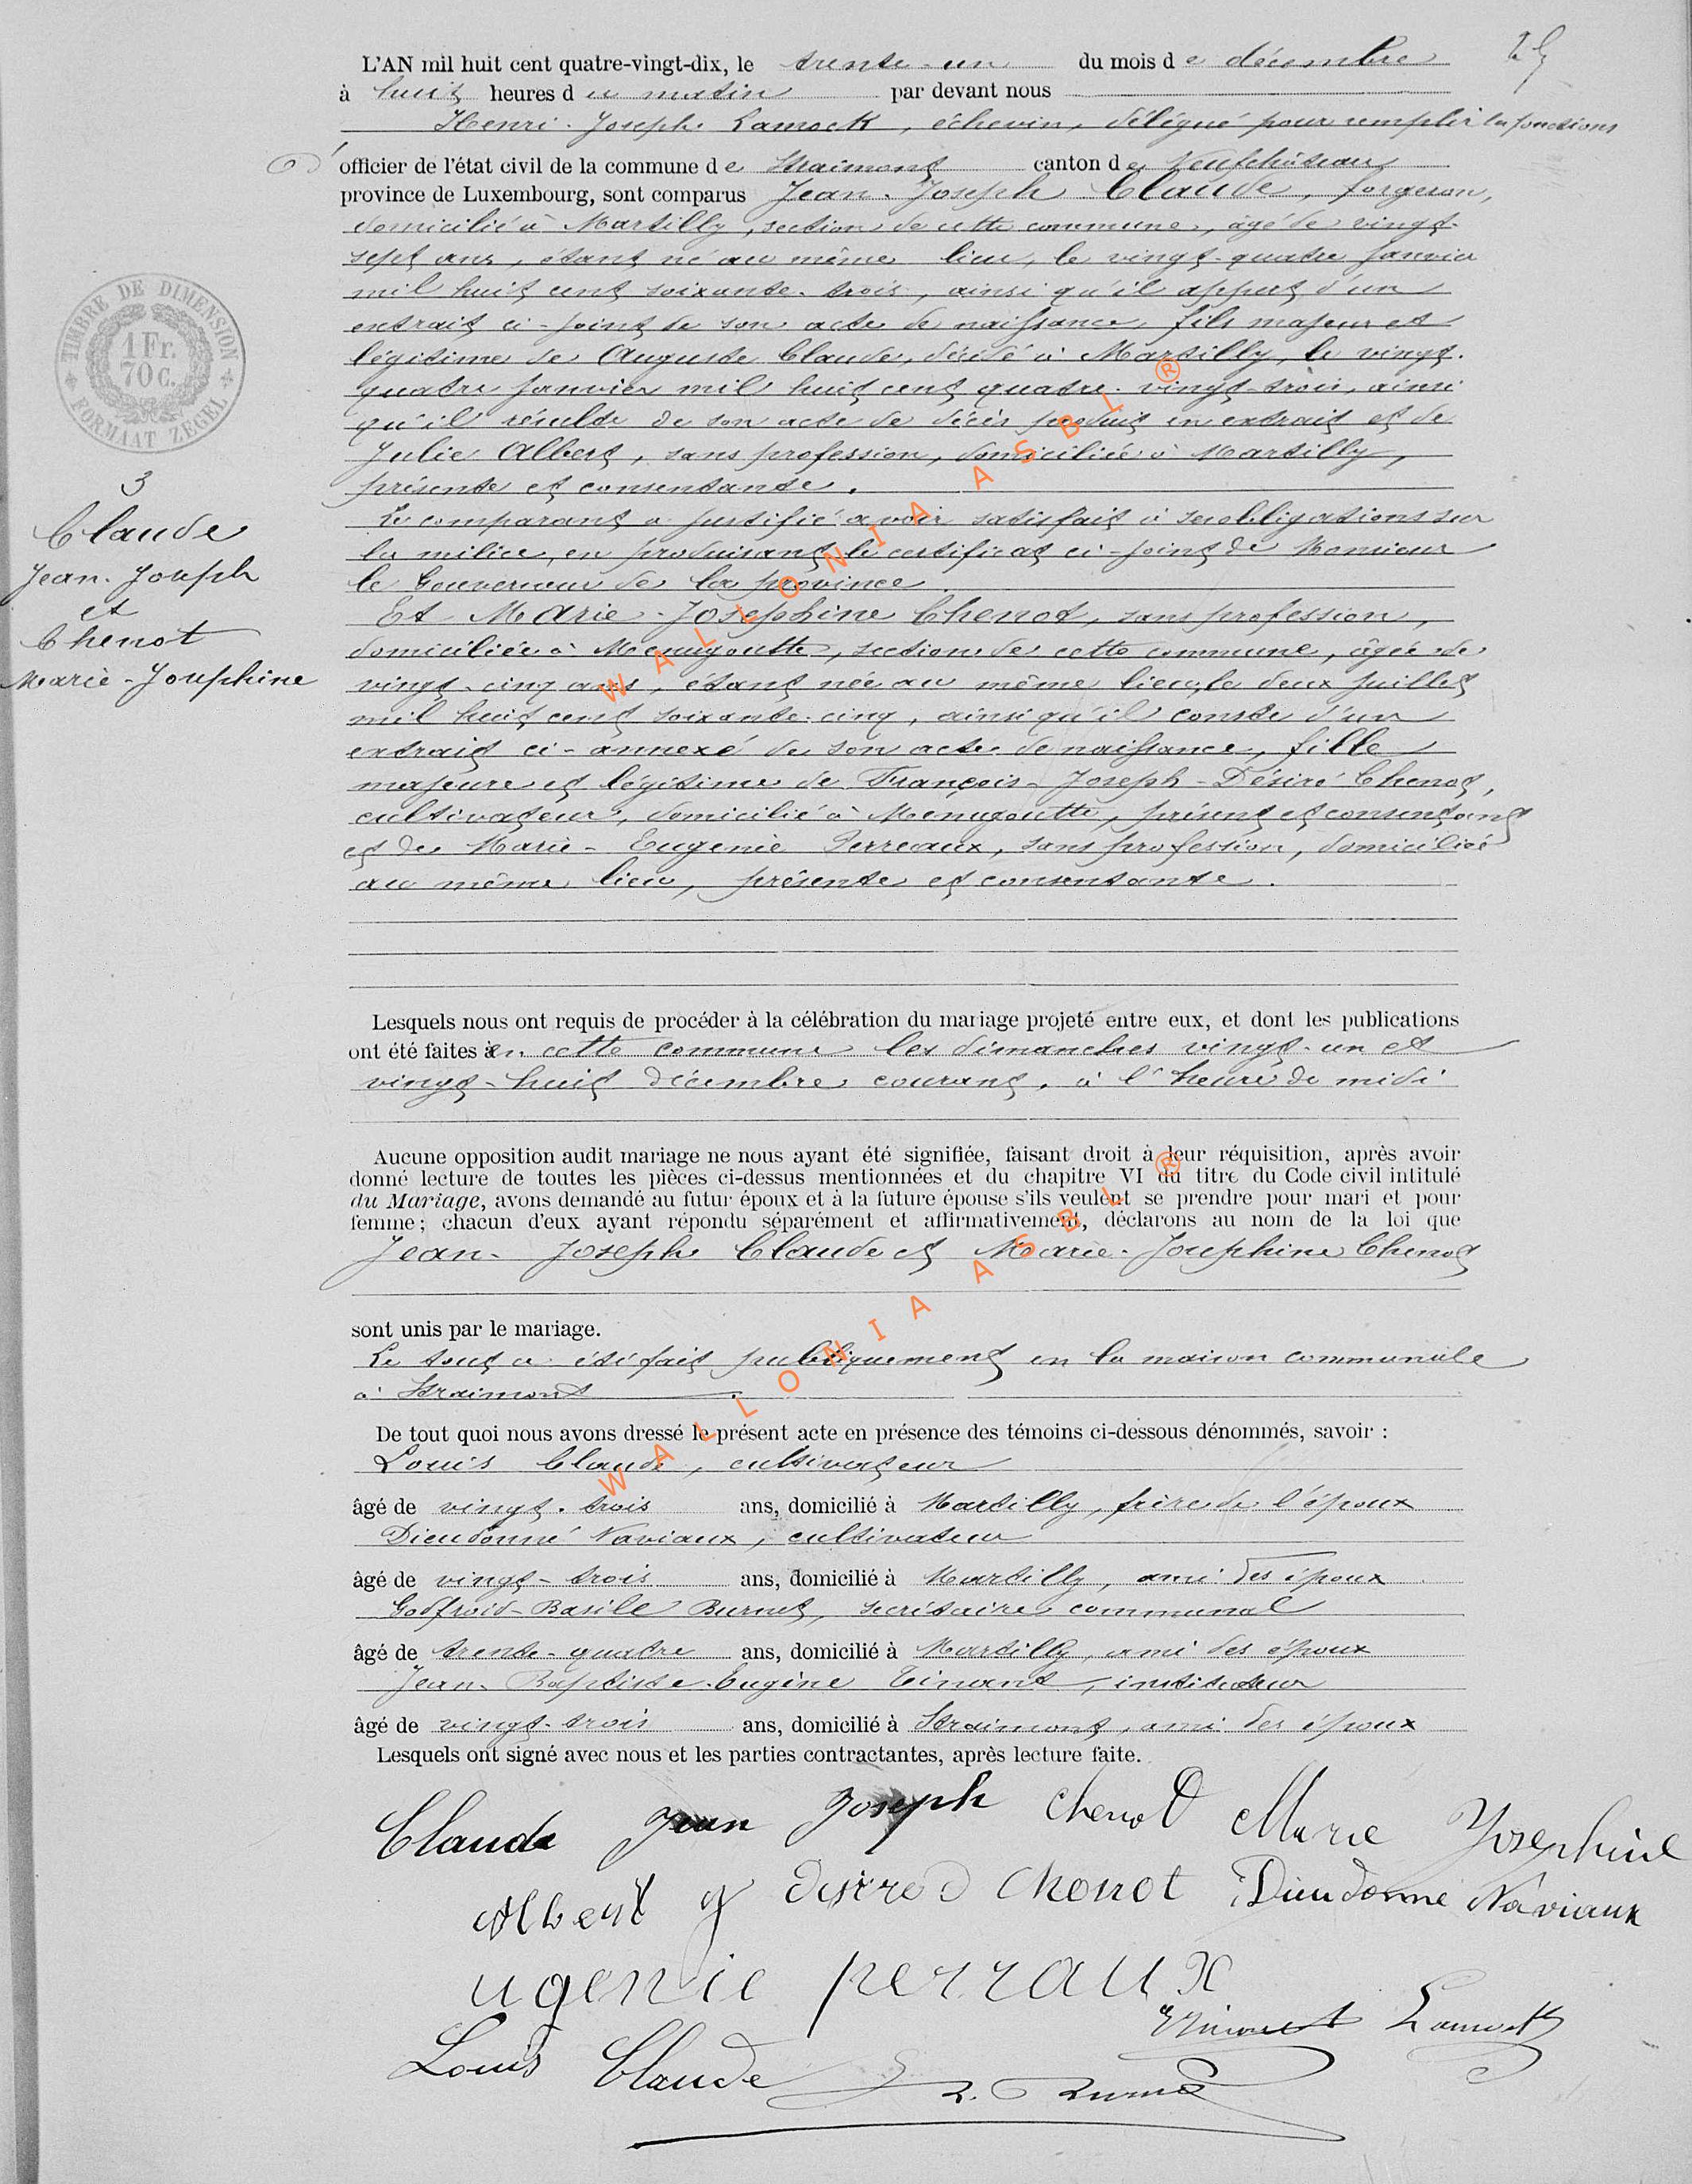 25
L'AN mil huit cent quatre-vingt-dix, le trente-un du mois de décembre
à huit heures du matin par devant nous
Henri-Joseph Lamock, échevin, délégué pour remplir les fonctions
d'officier de l'état civil de la commune de Straimont canton de Neufchâteau
province de Luxembourg, sont comparus Jean-Joseph Claude, forgeron,
domicilié à Martilly, section de cette commune, âgé de vingt-
sept ans, étant né au même lieu, le vingt-quatre janvier
mil huit cent soixante-trois, ainsi qu'il appert d'un
extrait ci-joint de son acte de naissance, fils majeur et
légitime de Auguste Claude, décédé à Martilly, le vingt-
quatre janvier mil huit cent quatre-vingt-trois, ainsi
qu'il résulte de son acte de décès produit en extrait et de
Julie Albert, sans profession, domiciliée à Martilly,
présente et consentante.
Le comparant a justifié avoir satisfait à ses obligations sur
la milice, en produisant le certificat ci-joint de Monsieur
le Gouverneur de la province.
Et Marie-Josephine Chenot, sans profession,
domiciliée à Menugoutte, section de cette commune, âgée de
vingt-cinq ans, étant née au même lieu, le deux juillet
mil huit cent soixante-cinq, ainsi qu'il conste d'un
extrait ci-annexé de son acte de naissance, fille
majeure et légitime de François-Joseph-Désiré Chenot,
cultivateur, domicilié à Menugoutte, présent et consentant
et de Marie-Eugénie Perreaux, sans profession, domiciliée
au même lieu, présente et consentante.
TIMBRE DE DIMENSION
1 Fr.
70 c.
FORMAAT ZEGEL
3
Claude
Jean-Joseph
et
Chenot
Marie-Josephine
Lesquels nous ont requis de procéder à la célébration du mariage projeté entre eux, et dont les publications
ont été faites en cette commune les dimanches vingt-un et
vingt-huit décembre courant, à l'heure de midi
Aucune opposition audit mariage ne nous ayant été signifiée, faisant droit à leur réquisition, après avoir
donné lecture de toutes les pièces ci-dessus mentionnées et du chapitre VI du titre du Code civil intitulé
du Mariage, avons demandé au futur époux et à la future épouse s'ils veulent se prendre pour mari et pour
femme; chacun d'eux ayant répondu séparément et affirmativement, déclarons au nom de la loi que
Jean-Joseph Claude et Marie-Josephine Chenot
sont unis par le mariage.
Le tout a été fait publiquement en la maison communale
à Straimont.
De tout quoi nous avons dressé le présent acte en présence des témoins ci-dessous dénommés, savoir :
Louis Claude, cultivateur
âgé de vingt-trois ans, domicilié à Martilly, frère de l'époux
Dieudonné Naviaux, cultivateur
âgé de vingt-trois ans, domicilié à Martilly, ami des époux
Godfroid-Basile Burnet, secrétaire communal
âgé de trente-quatre ans, domicilié à Martilly, ami des époux
Jean-Baptiste-Eugène Tinant, instituteur
âgé de vingt-trois ans, domicilié à Straimont, ami des époux
Lesquels ont signé avec nous et les parties contractantes, après lecture faite.
Claude Jean Joseph Chenot Marie Josephine
Albert J Désiré Chenot Dieudonné Naviaux
ugenie perraux
ETinant Lamock
Louis Claude
WALLONIA ASBL ®
WALLONIA ASBL ®